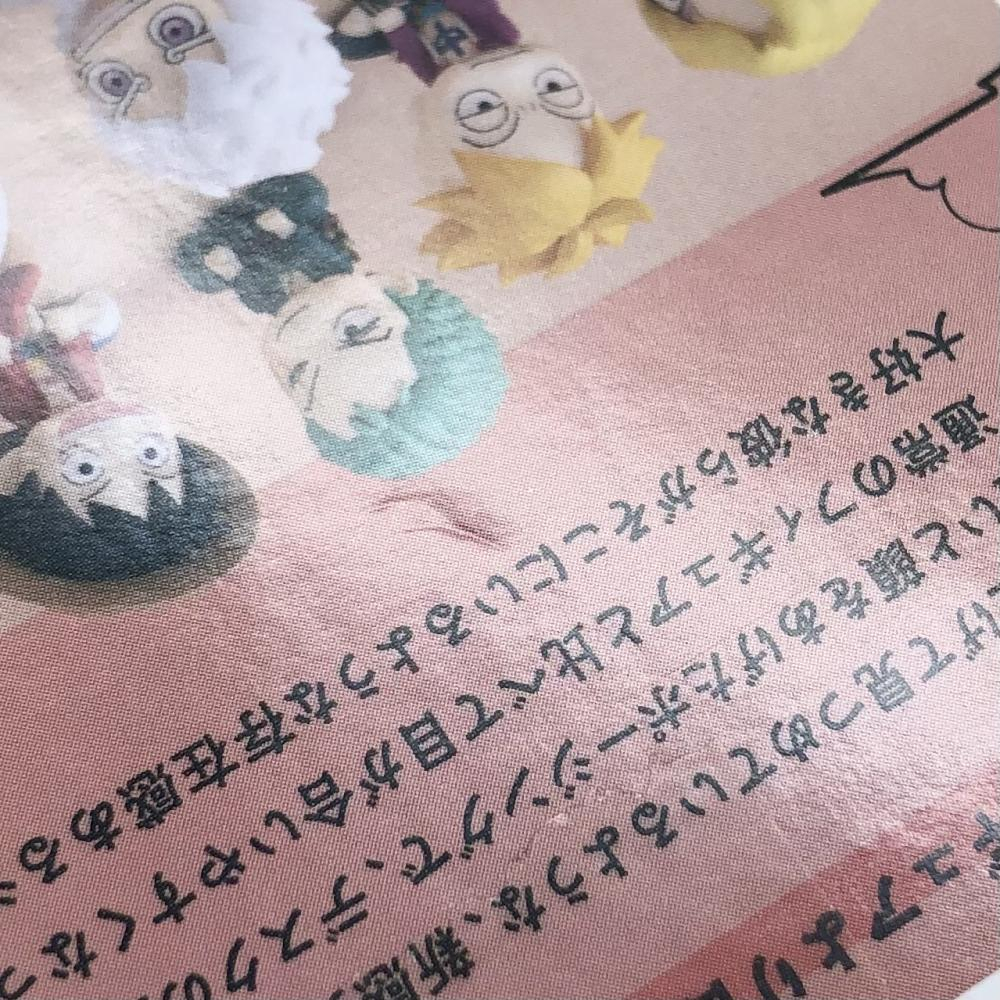 ギュアより
げて見つめているような、新感
いと顔をあげたポージングで、デスクの
通常のフィギュアと比べて目が合いやすくなっ
大好きな彼らがそこにいるような存在感ある